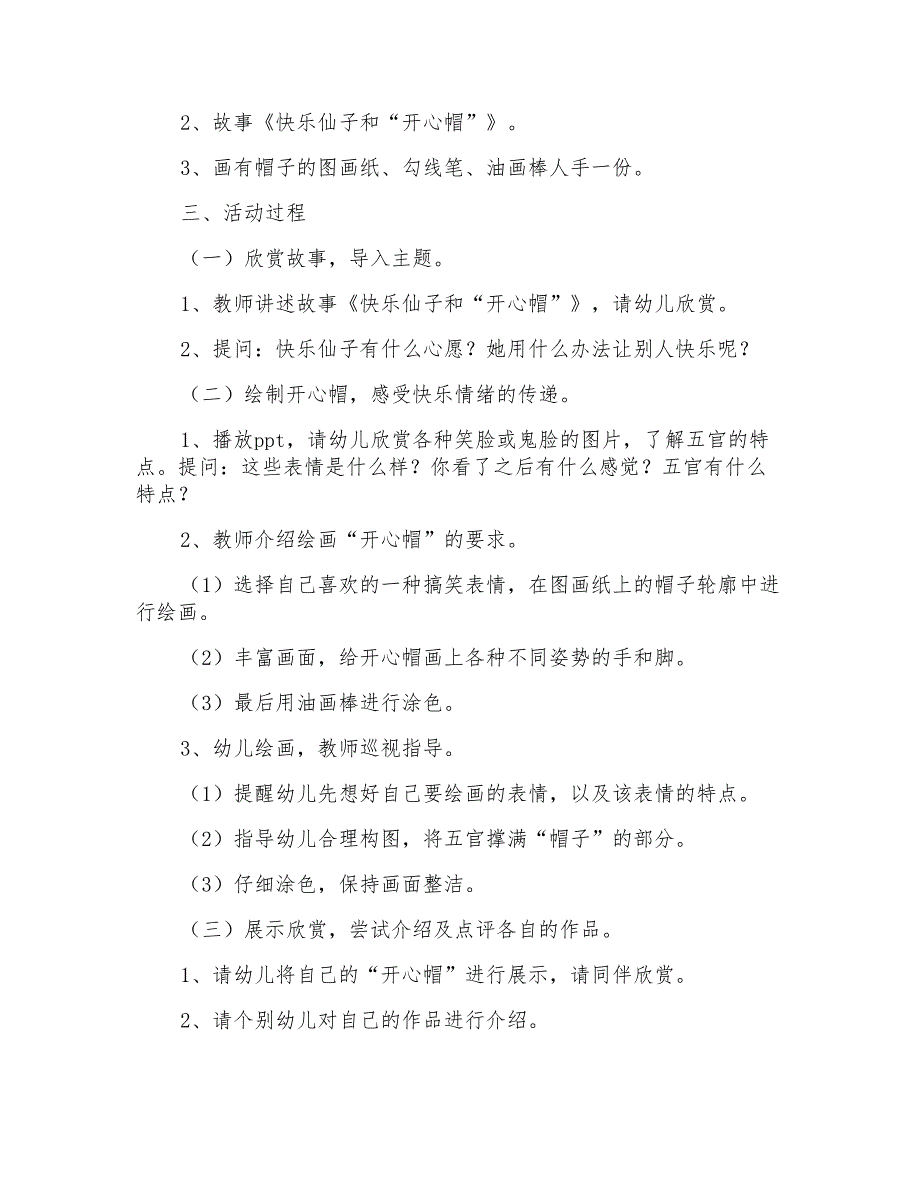 2、故事《快乐仙子和“开心帽”》。
3、画有帽子的图画纸、勾线笔、油画棒人手一份。
三、活动过程
（一）欣赏故事，导入主题。
1、教师讲述故事《快乐仙子和“开心帽”》，请幼儿欣赏。
2、提问：快乐仙子有什么心愿？她用什么办法让别人快乐呢？
（二）绘制开心帽，感受快乐情绪的传递。
1、播放ppt，请幼儿欣赏各种笑脸或鬼脸的图片，了解五官的特
点。提问：这些表情是什么样？你看了之后有什么感觉？五官有什么
特点？
2、教师介绍绘画“开心帽”的要求。
（1）选择自己喜欢的一种搞笑表情，在图画纸上的帽子轮廓中进
行绘画。
（2）丰富画面，给开心帽画上各种不同姿势的手和脚。
（3）最后用油画棒进行涂色。
3、幼儿绘画，教师巡视指导。
（1）提醒幼儿先想好自己要绘画的表情，以及该表情的特点。
（2）指导幼儿合理构图，将五官撑满“帽子”的部分。
（3）仔细涂色，保持画面整洁。
（三）展示欣赏，尝试介绍及点评各自的作品。
1、请幼儿将自己的“开心帽”进行展示，请同伴欣赏。
2、请个别幼儿对自己的作品进行介绍。